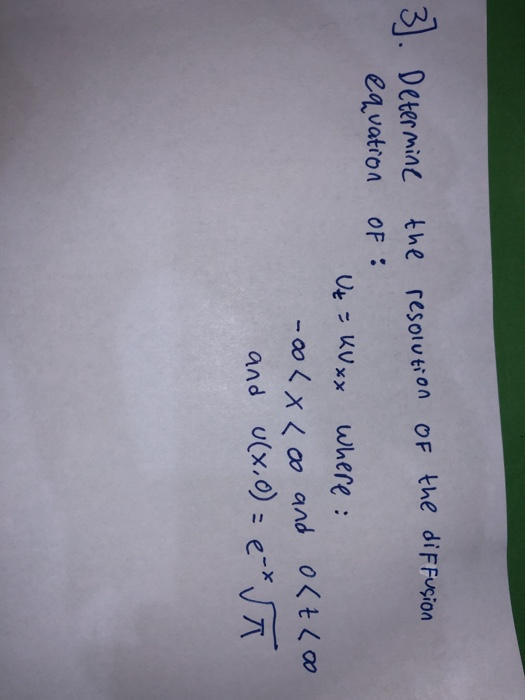 3]. Determine the resolution of the diffusion
equation of:
Ut = KUxx where:
-∞ < x < ∞ and 0 < t < ∞
and U(x,0) = e^-x √π